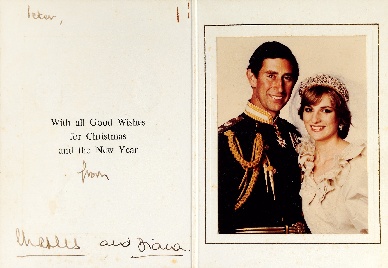 Peter,
With all Good Wishes
for Christmas
and the New Year
from
Charles and Diana.